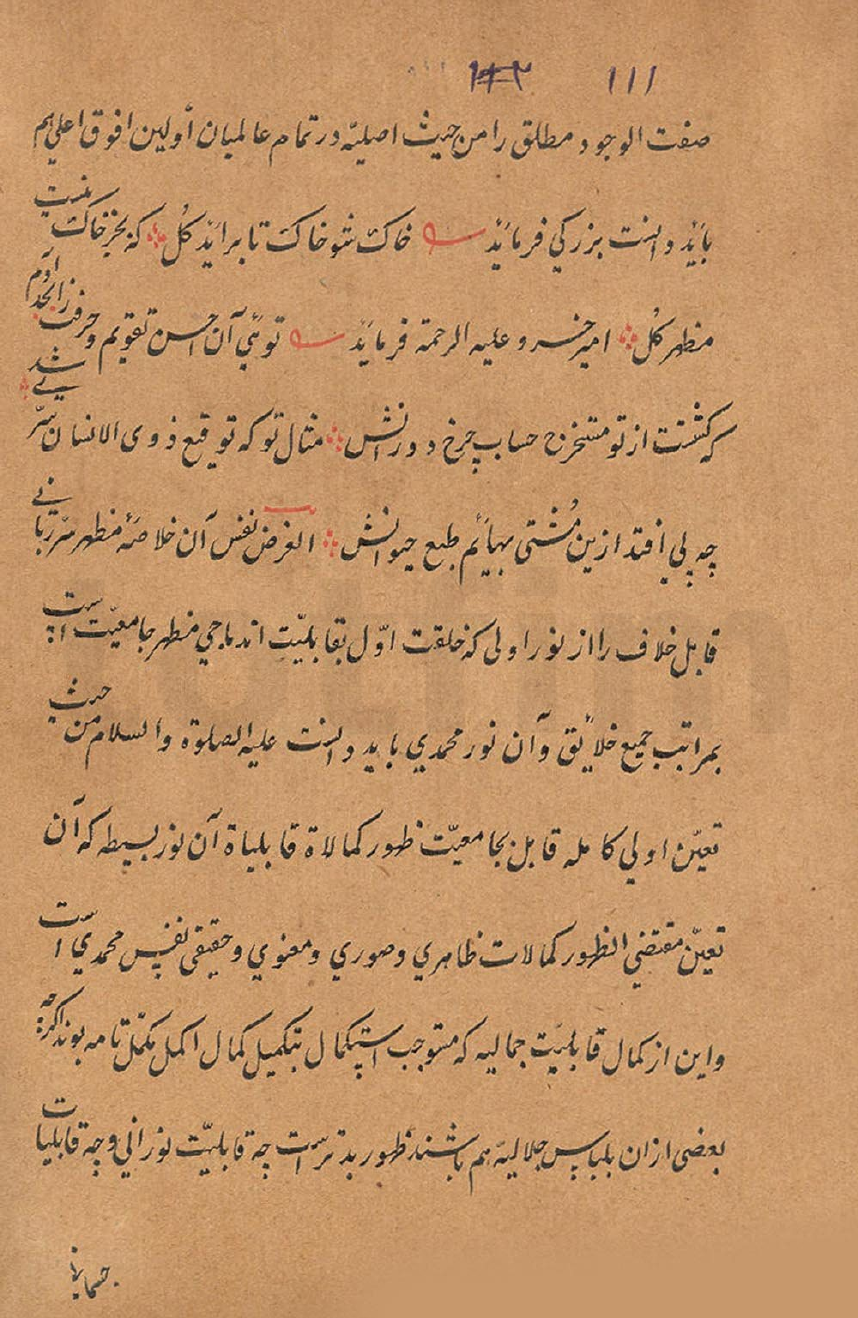 ۱۱۱ ۱۴۲
صفت الوجود مطلق را من حیث اصلیه در تمام عالمیان أولین افوق اعلی هم
باید دانست بزرگی فرماید خاک شو خاک تا براید کل که بجز خاک نیست
مظهر کل امیر خسرو علیه الرحمة فرماید توئی آن احسن تقویم و حرف ز ابجد آدم
که گشت از تو مستخرج حساب چرخ دورانش مثال تو که توقیع ذوی الانسان شد
چه پی افتد ازین مُشتی بهایٔم طبع حیوانش الغرض نفس آن خلاصهٔ مظهر سرّ ربانی
قابل خلاف را از نور اولی که خلقت اوّل بقابلیّت اندماجی مظهر جامعیّت است
بمراتب جمیع خلایٔق و آن نور محمدی باید دانست علیه الصلوة والسلام من حیث
تعیّن اولی کامله قابل بجامعیّت ظهور کمالاة قابلیاة آن نور بسیطه که آن
تعیّن مقتضی الظهور کمالات ظاهری و صوری و معنوی و حقیقی نفس محمدی است
و این از کمال قابلیّت جمالیه که مستوجب استکمال بتکمیل کمال اکمل مکمّل تامه بوند اگرچه
بعضی ازان بلباس جلالیه هم باشند ظهور بدتر است چه قابلیّت نورانی و چه قابلیات